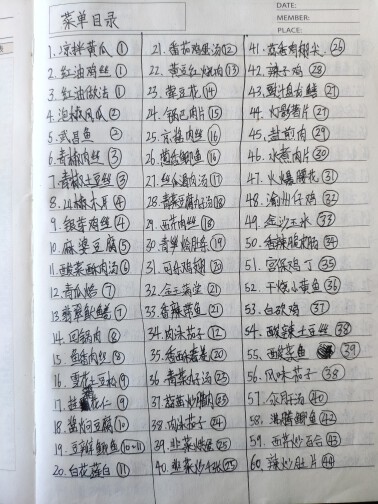 菜单目录
DATE:
MEMBER:
PLACE:
1. 凉拌黄瓜 ①
2. 红油鸡丝 ①
3. 红油做法 ①
4. 泡椒凤爪 ②
5. 武昌鱼 ②
6. 青椒肉丝 ③
7. 青椒土豆丝 ③
8. 山椒木耳 ④
9. 银芽鸡丝 ④
10. 麻婆豆腐 ⑤
11. 酸菜酥肉汤 ⑥
12. 青瓜烙 ⑦
13. 翡翠鱿鳝 ⑦
14. 回锅肉 ⑧
15. 鱼香肉丝 ⑧
16. 雪花土豆松 ⑨
17. ⑨
18. 黄焖豆腐 ⑩
19. 豆瓣鲫鱼 ⑩-11
20. 白花莲白 ⑪
21. 番茄鸡蛋汤 ⑫
22. 黄豆红烧肉 ⑬
23. 蛋豆花 ⑭
24. 锅巴肉片 ⑮
25. 京酱肉丝 ⑯
26. 葱香鲫鱼 ⑯
27. 丝瓜汤 ⑰
28. 青菜豆腐汤 ⑱
29. 西芹肉丝 ⑱
30. 青笋烧肚条 ⑲
31. 可乐鸡翅 ⑳
32. 金玉满堂 ㉑
33. 香辣带鱼 ㉑
34. 肉末茄子 ⑫
35. 香酥春卷 ⑳
36. 青菜汤 ㉓
37. 蒜苗炒腊肉 ㉓
38. 肉末茄子 ㉔
39. 韭菜煎蛋 ㉕
40. 韭菜炒千张 ㉕
41. 蒜香鸡翅尖 ㉖
42. 辣子鸡 ㉘
43. 豉汁盘龙鳝 ㉗
44. 灯影苕片 ㉗
45. 盐煎肉 ㉙
46. 水煮肉片 ㉚
47. 火爆腰花 ㉛
48. 渝州仔鸡 ㉜
49. 金沙玉米 ㉝
50. 香辣脆肠 ㉞
51. 宫保鸡丁 ㉟
52. 干烧小黄鱼 ㊱
53. 白砍鸡 ㊲
54. 酸辣土豆丝 ㊳
55. 酸菜鱼 ㊴
56. 风味茄子 ㊳
57. 汆肝汤 ㊵
58. 沸腾鲫鱼 ㊷
59. 西芹炒百合 ㊸
60. 辣炒肚片 ㊹